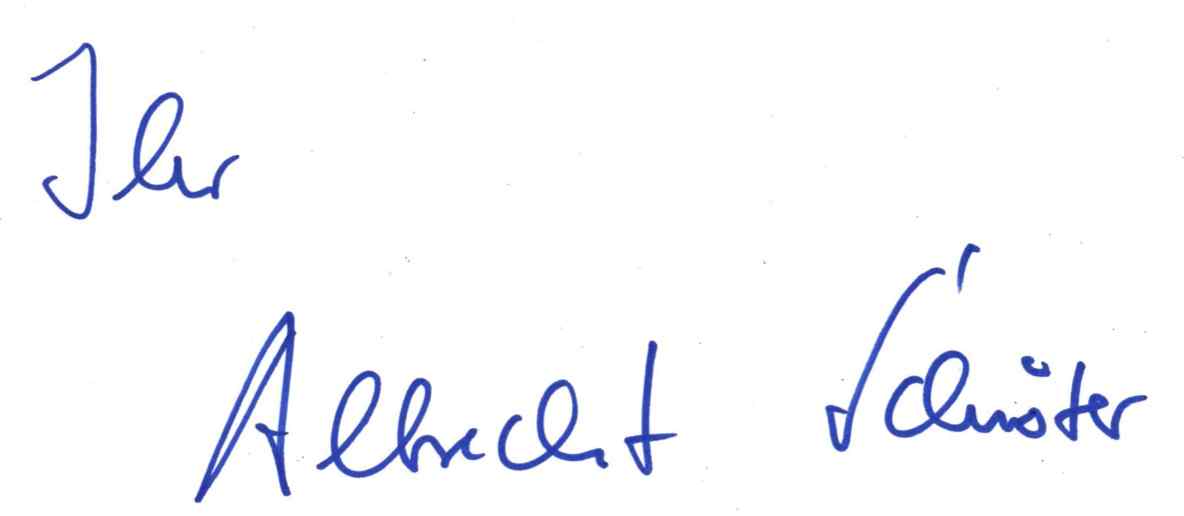 Ihr
Albrecht Schröter